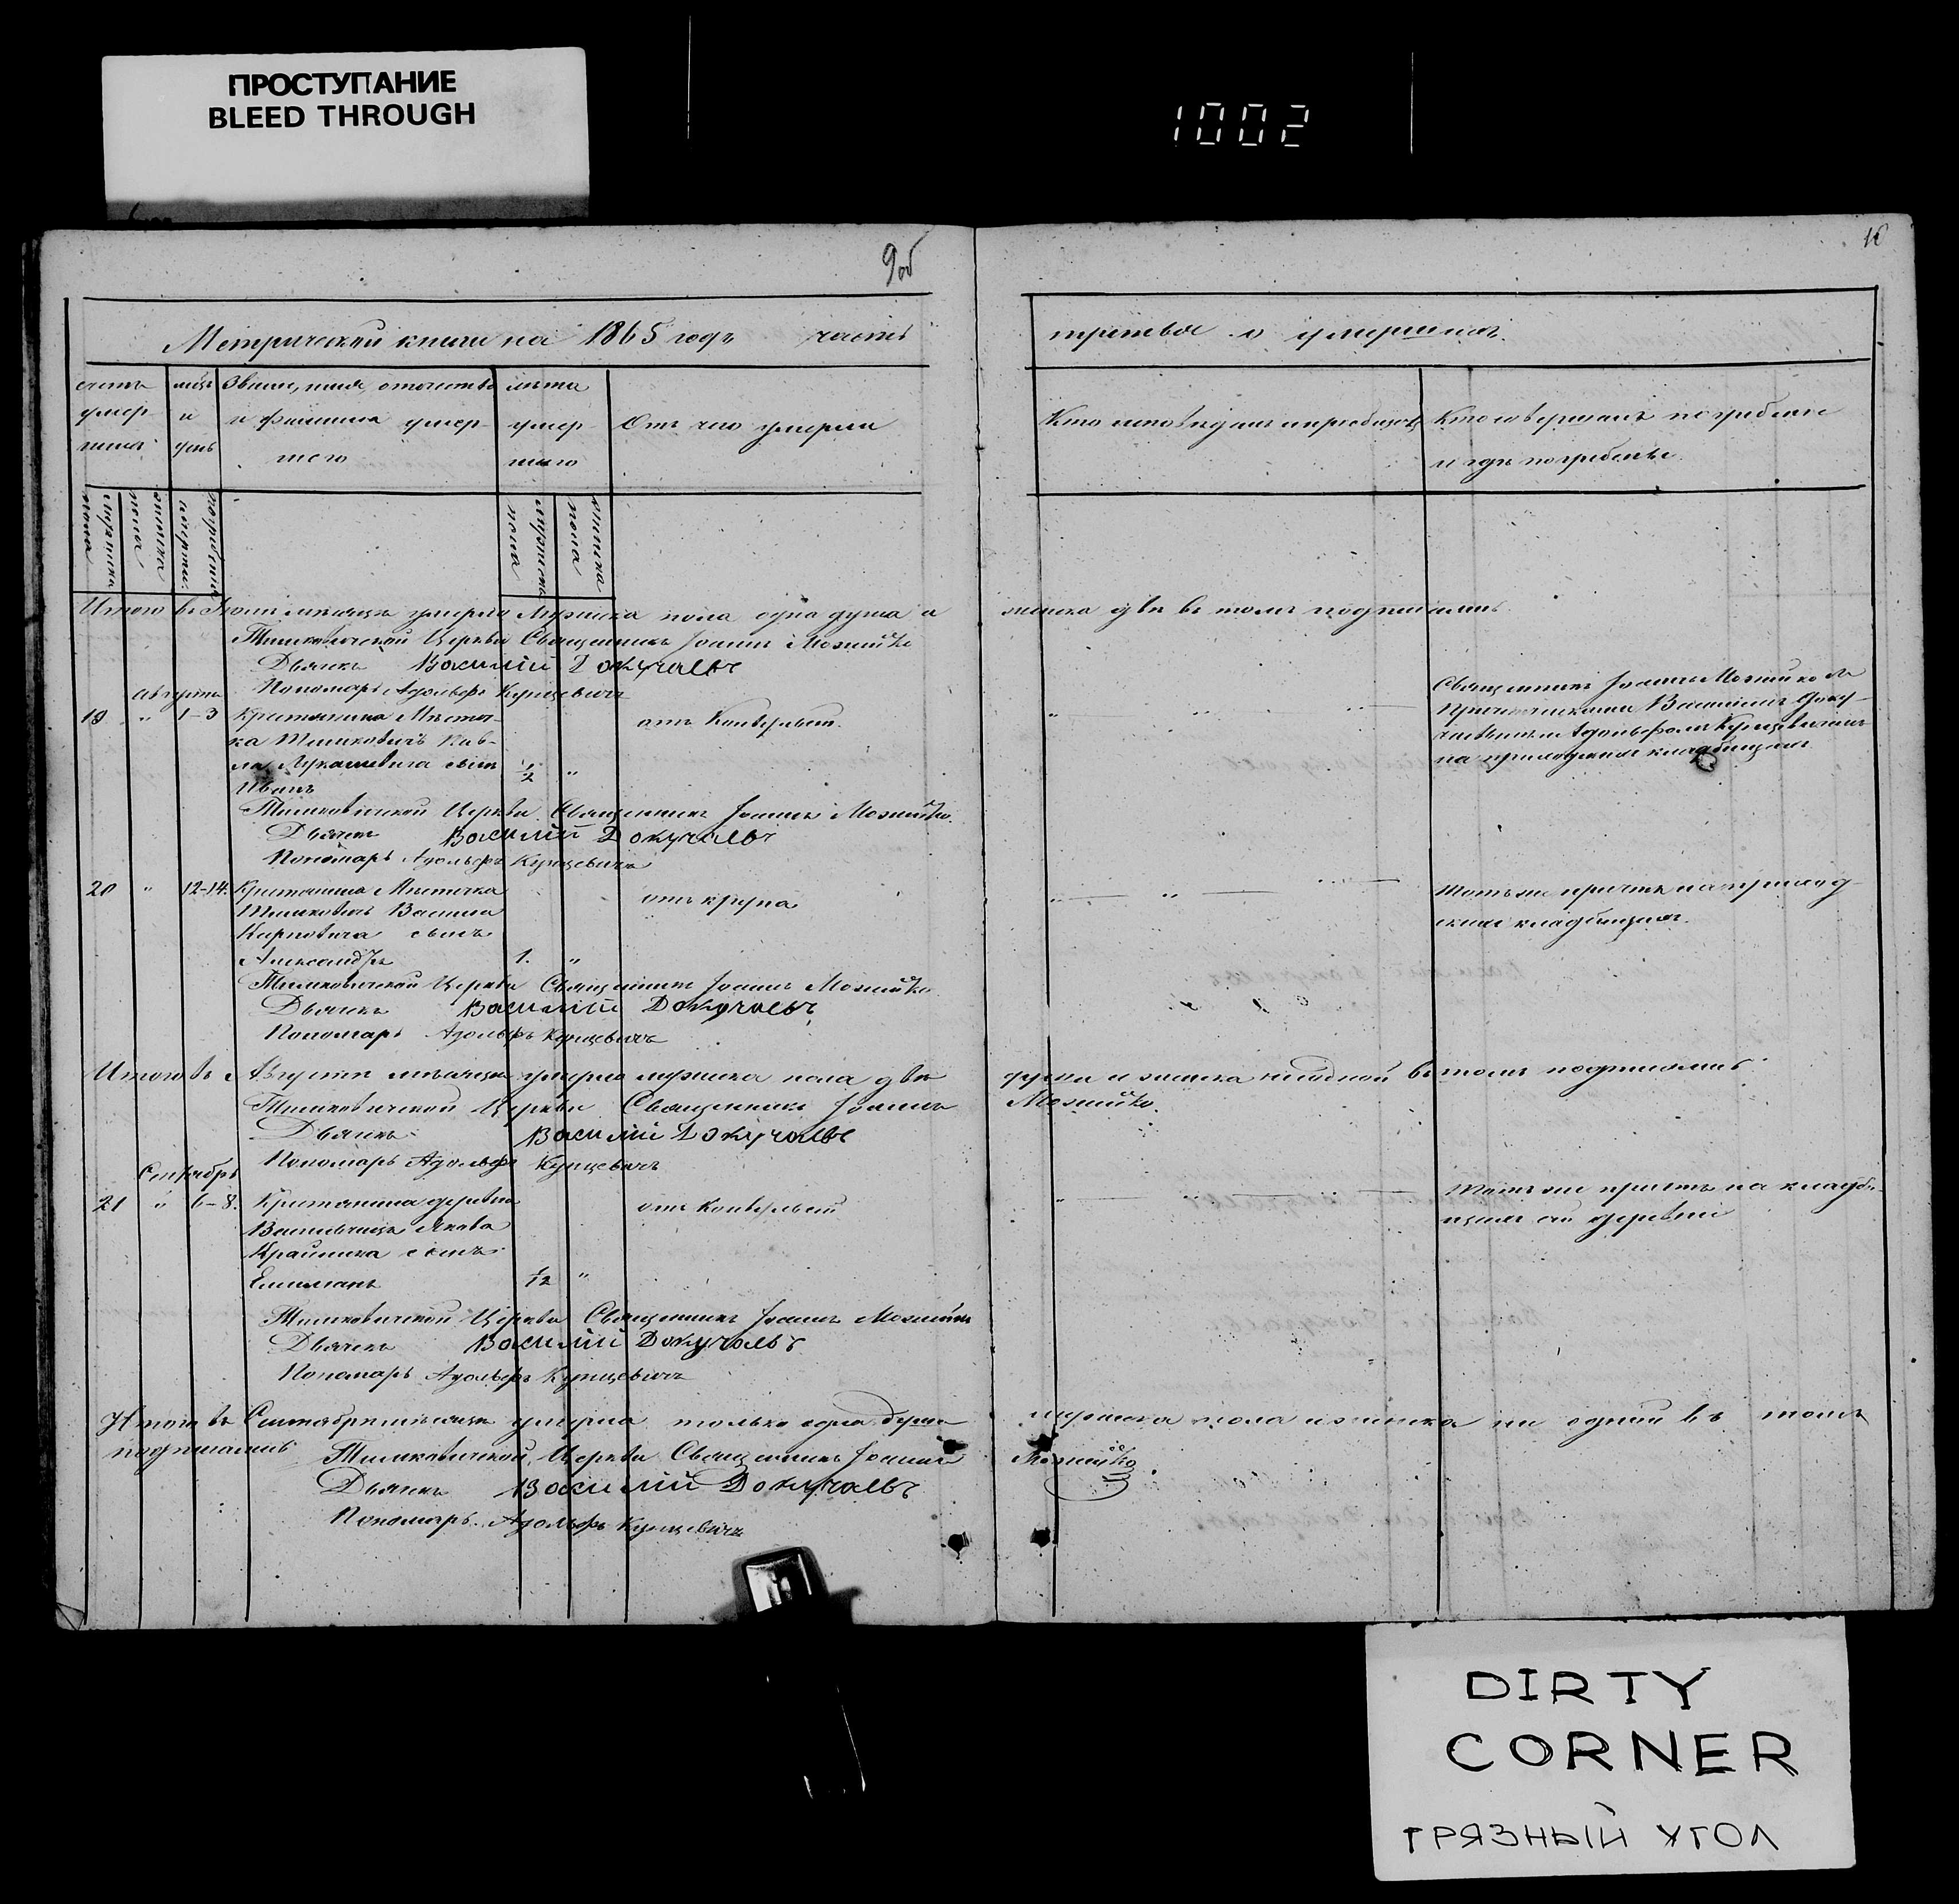 ПРОСТУПАНИЕ
BLEED THROUGH
1002
9об
10
Метрической книги на 1865 годъ часть
третья о умершихъ.
счетъ умер-шихъ
мѣсц и день
Званіе, имя, отчество
и фамилія умер-
шего
лѣта умер-шаго
Отъ чего умерли
Кто исповѣдалъ и пріобщалъ
Кто совершалъ погребеніе
и гдѣ погребены.
мужеска пола
женска пола
погребенія
мужеска пола
женска пола
Итого въ Іюли мѣсяцѣ умерло Мужеска пола одна душа а
женска двѣ въ томъ подписались
Тимковичской Церкви Священникъ Іоаннъ
Дьячекъ Василій Докучаевъ
Пономарь Адольфъ Купцевичъ
Августъ
19 " 1-3 Крестьянина Мѣстеч-
ка Тимковичъ Пав-
ла Лукашевича сынъ
Иванъ
1/2 "
отъ Конвульсій.
Священникъ Іоаннъ съ
Причетниками Василіемъ Доку-
чаевымъ и Адольфомъ Купцевичемъ
на приходскихъ кладбищахъ
Тимковичской Церкви Священникъ Іоаннъ
Дьячекъ Василій Докучаевъ
Пономарь Адольфъ Купцевичъ
20 " 12-14. Крестьянина Мѣстечка
Тимковичъ Василія
Карповича сынъ
Александръ 1. "
отъ крупа
Тотъ же причтъ на приход-
скихъ кладбищахъ.
Тимковичской Церкви Священникъ Іоаннъ
Дьячекъ Василій Докучаевъ
Пономарь Адольфъ Купцевичъ
Итого въ Августѣ мѣсяцѣ умерло мужеска пола двѣ
души и женска ни одной въ томъ подписались
Тимковичской Церкви Священникъ Іоаннъ
Дьячекъ Василій Докучаевъ
Пономарь Адольфъ Купцевичъ
Сентябрь
21 " 6-8. Крестьянина деревни
Якова
сынъ
1/12 "
отъ Конвульсій
Тотъ же причтъ на кладби-
щахъ сей деревни
Тимковичской Церкви Священникъ Іоаннъ
Дьячекъ Василій Докучаевъ
Пономарь Адольфъ Купцевичъ
Итого въ Сентябрѣ мѣсяцѣ умерла только одна душа
мужеска пола и женска ни одной въ томъ
подписались
Тимковичской Церкви Священникъ Іоаннъ
Дьячекъ Василій Докучаевъ
Пономарь Адольфъ Купцевичъ
DIRTY
CORNER
ГРЯЗНЫЙ УГОЛ